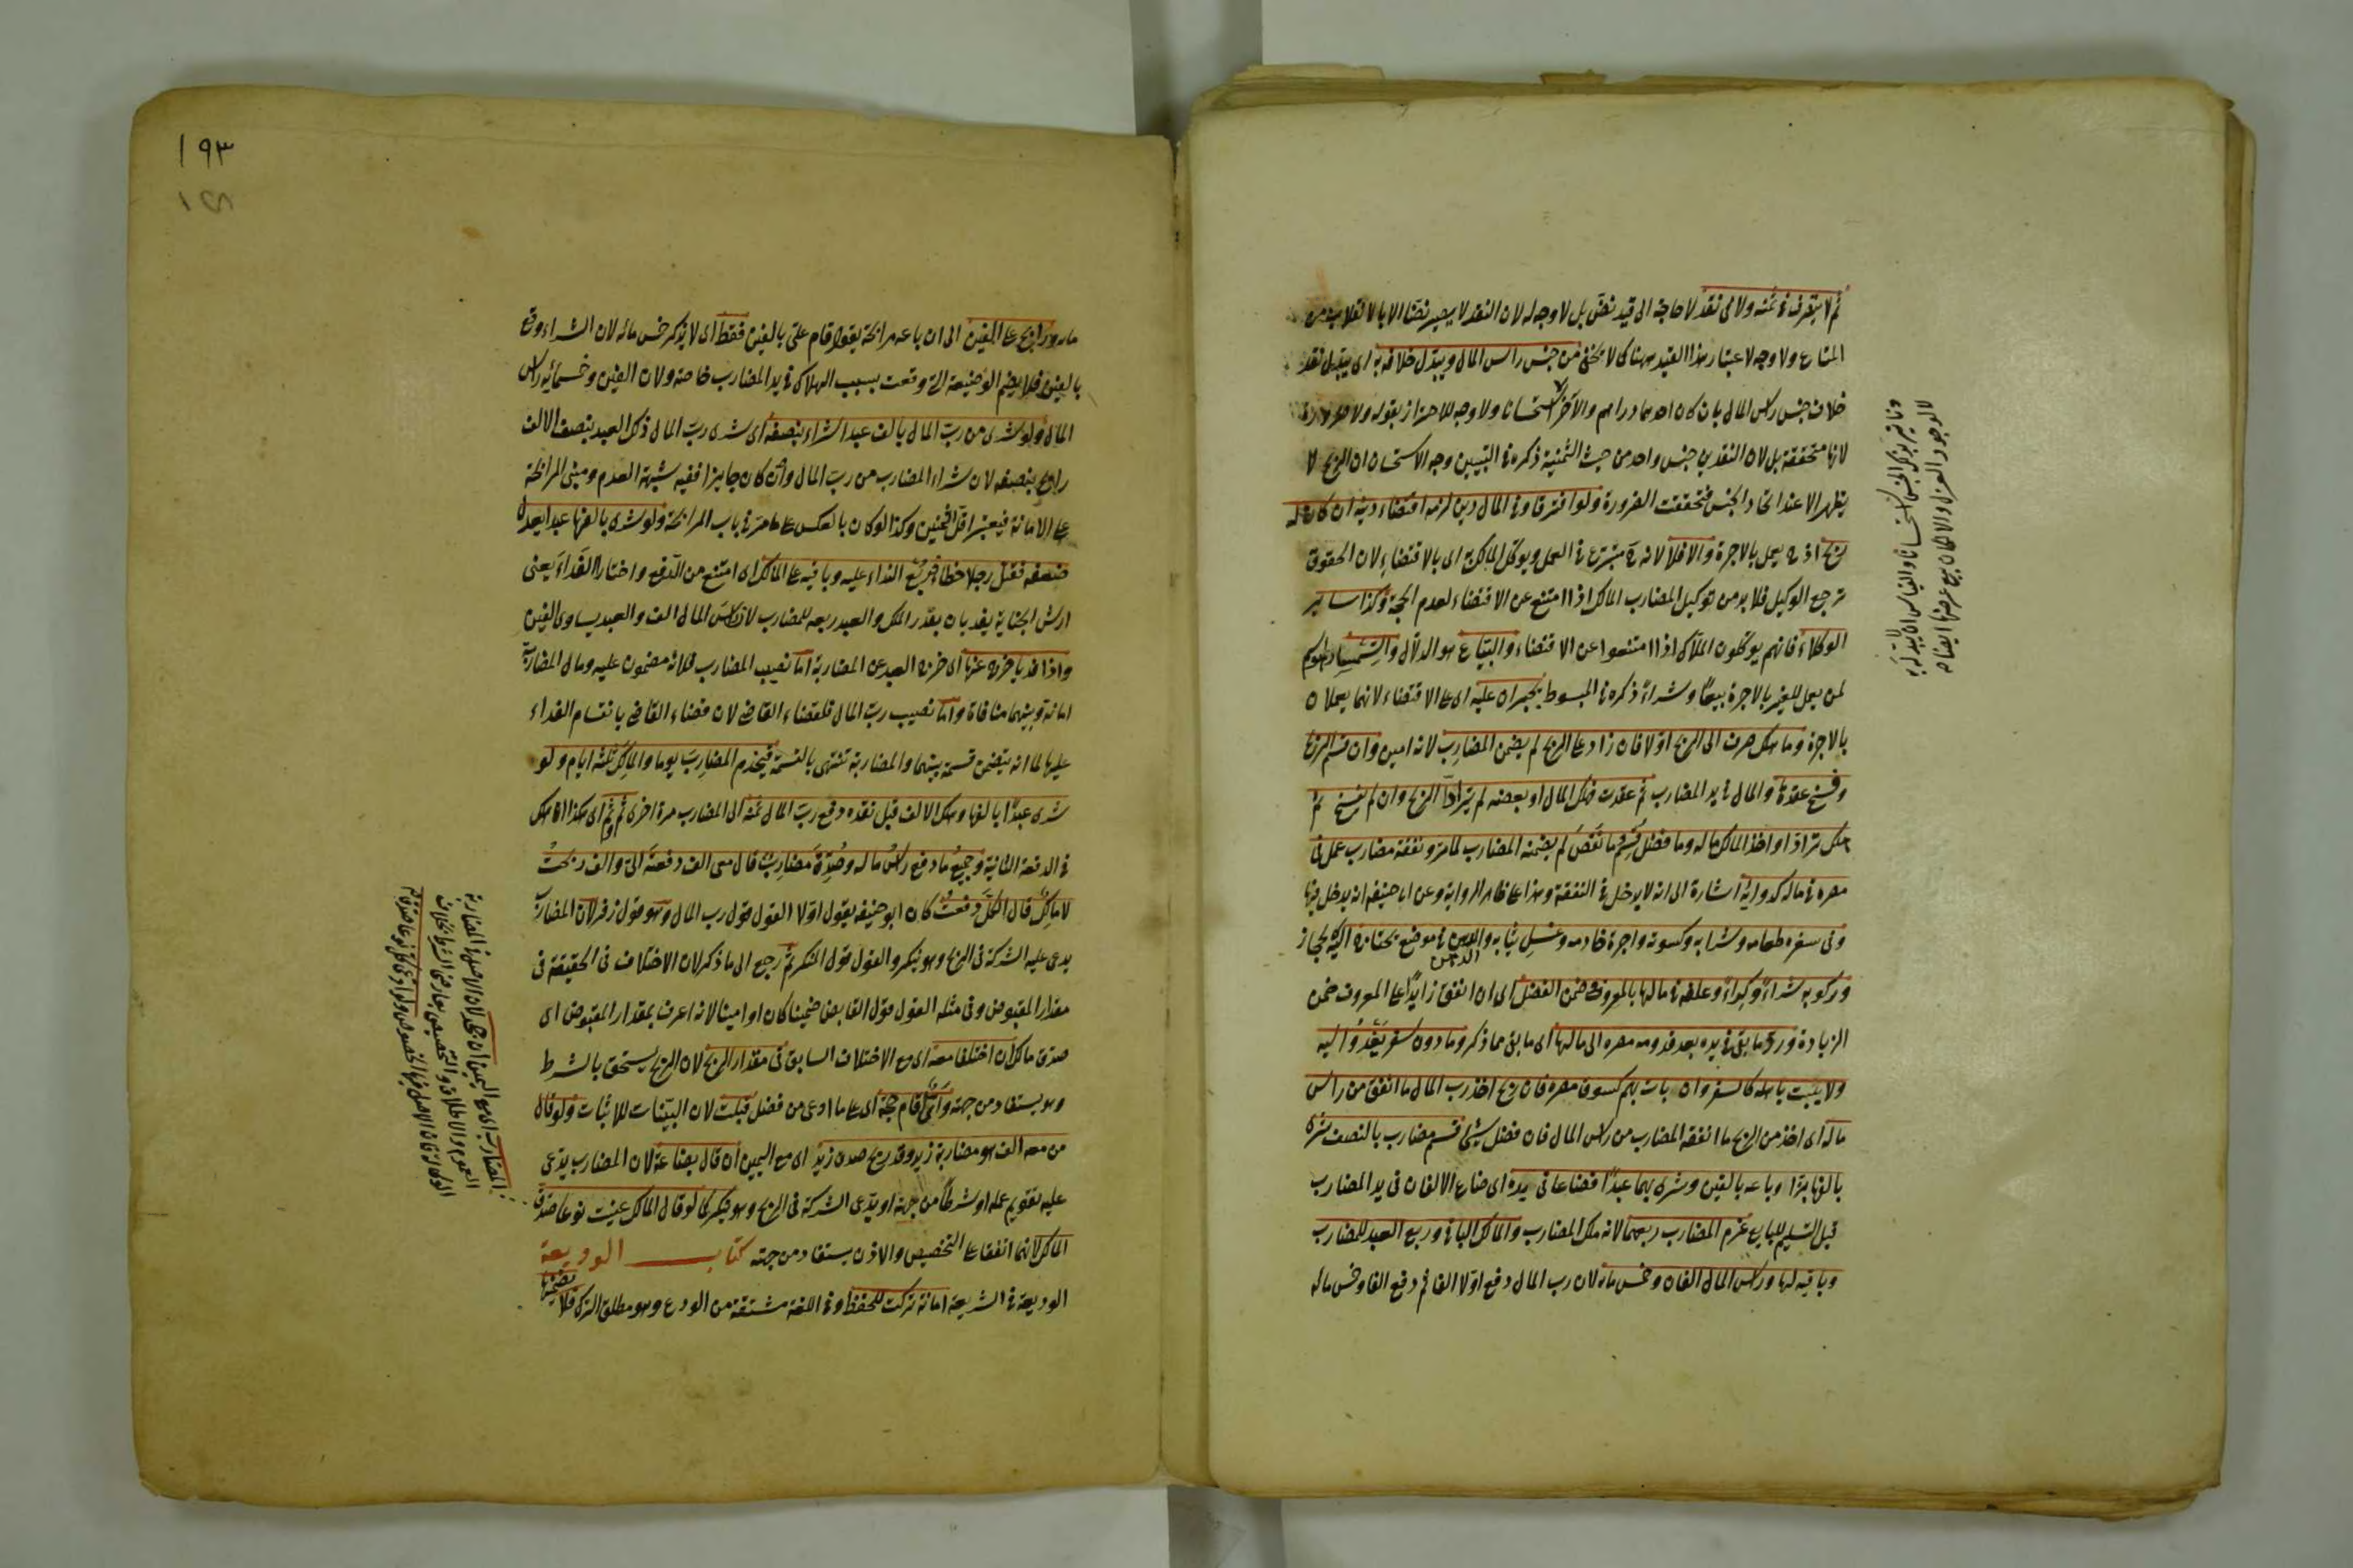 ثم لا يتصرف في ثمنه ولا في نقد لا حاجة الى قيد نض بل لا وجه له لان النقد لا يصير نضا الا بالانقلاب من
المتاع ولا وجه لاعتبار هذا القيد ههنا كما لا يخفى من جنس راس المال ويبدل خلافه به اى يبدل نقد
خلاف جنس راس المال بان كان احدهما دراهم والآخر استحسانا ولا وجه للاحتراز بقوله ولا
لانها متحققة بل لان النقدين جنس واحد من حيث الثمنية ذكره في التبيين وجه الاستحسان ان الربح لا
يظهر الا عند اتحاد الجنس فتحققت الضرورة ولو افترقا وفي المال دين لزمه اقتضاء دينه ان كان له
ربح اذ ح يعمل بالاجرة والا فلا لانه ح متبرع في العمل ويوكل المالك به اى بالاقتضاء لان الحقوق
ترجع الوكيل فلا بد من توكيل المضارب المالك اذا امتنع عن الاقتضاء لعدم الجبر وكذا ساير
الوكلاء فانهم يوكلون الملاك اذا امتنعوا عن الاقتضاء والبياع هو الدلال والسمسار هو
لمن يعمل للغير بالاجرة بيعا وشراء ذكره في المبسوط يجبران عليه اى على الاقتضاء لانهما يعملان
بالاجرة وما هلك صرف الى الربح اولا فان زاد على الربح لم يضمن المضارب لانه امين وان قسم الربح
وفسخ عقدها والمال في يد المضارب ثم عقدت فهلك المال او بعضه لم يترادا الربح وان لم يفسخ ثم
هلك ترادا واخذ المالك ماله وما فضل قسم وما نقص لم يضمنه المضارب لما مر ونفقة مضارب عمل في
مصره في ماله كدوائه اشارة الى انه لا يدخل في النفقة وهذا على ظاهر الرواية وعن ابى حنيفة انه يدخل فيها
وفي سفره طعامه وشرابه وكسوته واجرة خادمه وغسل ثيابه والدهن في موضع يحتاج اليه كالحجاز
وركوبه شراء وكراء وعلفه في مالها بالمعروف ضمن الفضل اى ان انفق زايدا على المعروف ضمن
الزيادة ورد ما بقى في يده بعد قدومه مصره الى مالها اى ما بقى مما ذكر وما دون سفر يغدو اليه
ولا يبيت باهله كالسفر وان بات بهم كسوق مصره فان ربح اخذ رب المال ما انفق من راس
ماله اى اخذ من الربح ما انفقه المضارب من راس المال فان فضل شئ قسم مضارب بالنصف شرى
بالفها بزا وباعه بالفين وشرى بهما عبدا فضاعا في يده اى ضاع الالفان في يد المضارب
قبل التسليم للبايع غرم المضارب ربعهما لانه ملك المضارب والمالك الباقي وربع العبد للمضارب
وباقيه لها وراس المال الفان وخمس مائة لان رب المال دفع اولا الفا ثم دفع الفا وخمس مائة
مائه ورابح على الفين اى ان باعه مرابحة يقول قام على بالفين فقط اى لا يذكر خمس مائه لان الشراء وقع
بالفين فلا يضم الوضيعة التي وقعت بسبب الهلاك في يد المضارب خاصة ولان الفين وخمسمائه راس
المال ولو شرى من رب المال بالف عبدا شراه بنصفه اى شرى رب المال ذلك العبد بنصف الالف
رابح بنصفه لان شراء المضارب من رب المال وان كان جايزا ففيه شبهة العدم ومبنى المرابحة
على الامانة فيعتبر اقل الثمنين وكذا لو كان بالعكس على ما مر في باب المرابحة ولو شرى بالفها عبدا يعدل
ضعفه فقتل رجلا خطأ فربع الفداء عليه وباقيه على المالك اى امتنع من الدفع واختارا الفداء يعنى
ارش الجناية يفديان بقدر الملك والعبد ربعه للمضارب لان راس المال الف والعبد يساوى الفين
واذا فدياه خرج عنها اى خرج العبد عن المضاربة اما نصيب المضارب فلانه مضمون عليه ومال المضاربة
امانة وبينهما منافاة واما نصيب رب المال فلقضاء القاضى لان قضاء القاضى بانقسام الفداء
عليهما لما انه يتضمن قسمة بينهما والمضاربة تنتهى بالقسمة فيخدم المضارب يوما والمالك ثلثة ايام ولو
شرى عبدا بالفها وهلك الالف قبل نقده دفع رب المال ثمنه الى المضارب مرة اخرى ثم وثم اى هكذا ان هلك
في الدفعة الثانية وجميع ما دفع راس ماله وصدق مضارب قال معى الف دفعته الى والف ربحت
لا مالك قال الكل دفعت كان ابو حنيفة يقول اولا القول قول رب المال وهو قول زفر لان المضارب
يدعى عليه الشركة في الربح وهو ينكر والقول قول المنكر ثم رجع الى ما ذكر لان الاختلاف في الحقيقة في
مقدار المقبوض وفي مثله القول قول القابض ضمينا كان او امينا لانه اعرف بمقدار المقبوض اى
صدق مالك ان اختلفا معه اى مع الاختلاف السابق في مقدار الربح لان الربح يستحق بالشرط
وهو يستفاد من جهته واى اقام حجة اى على ما ادعى من فضل قبلت لان البينات للاثبات ولو قال
من معه الف هو مضاربة زيد وقد ربح صدق زيد اى مع اليمين ان قال بضاعة لان المضارب يدعى
عليه تقويم عمله او شرطا من جهته او يدعى الشركة في الربح وهو ينكر كما لو قال المالك عينت نوعا صدق
المالك لانهما اتفقا على التخصيص والاذن يستفاد من جهته كتاب الوديعة
الوديعة في الشريعة امانة تركت للحفظ وفي اللغة مشتقة من الودع وهو مطلق الترك فلا يضمنها
١٩٣